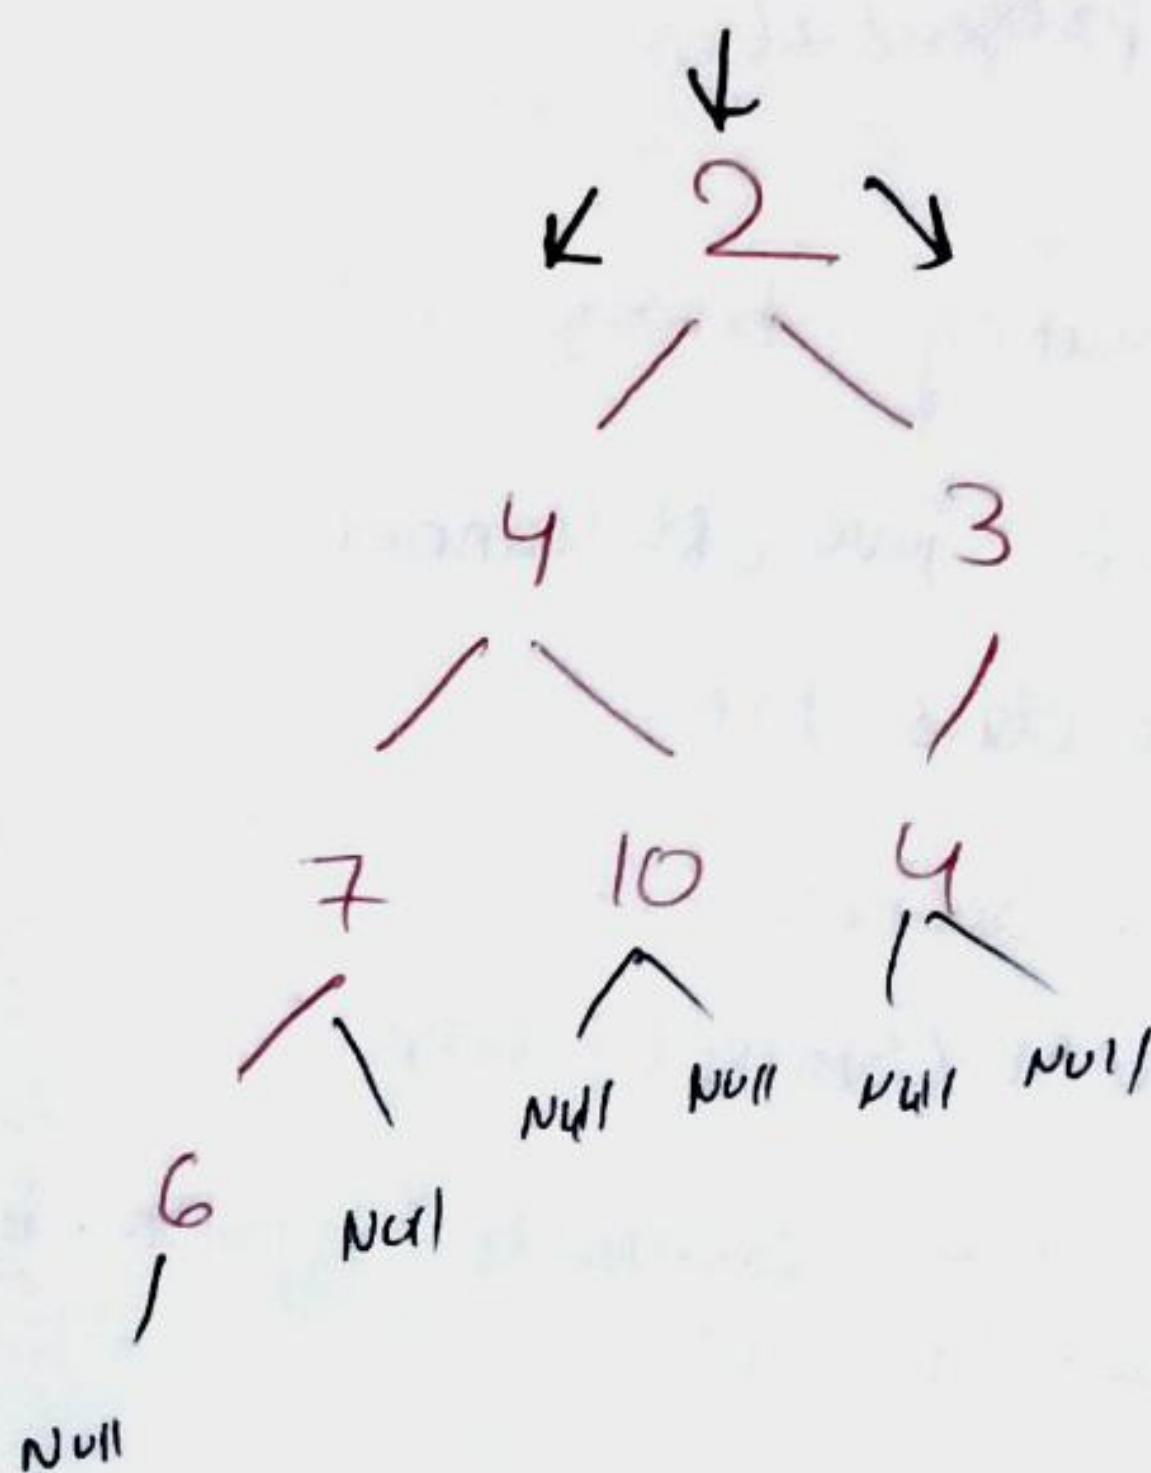 2
4 3
7 10 4
Null Null Null Null
6 Null
Null